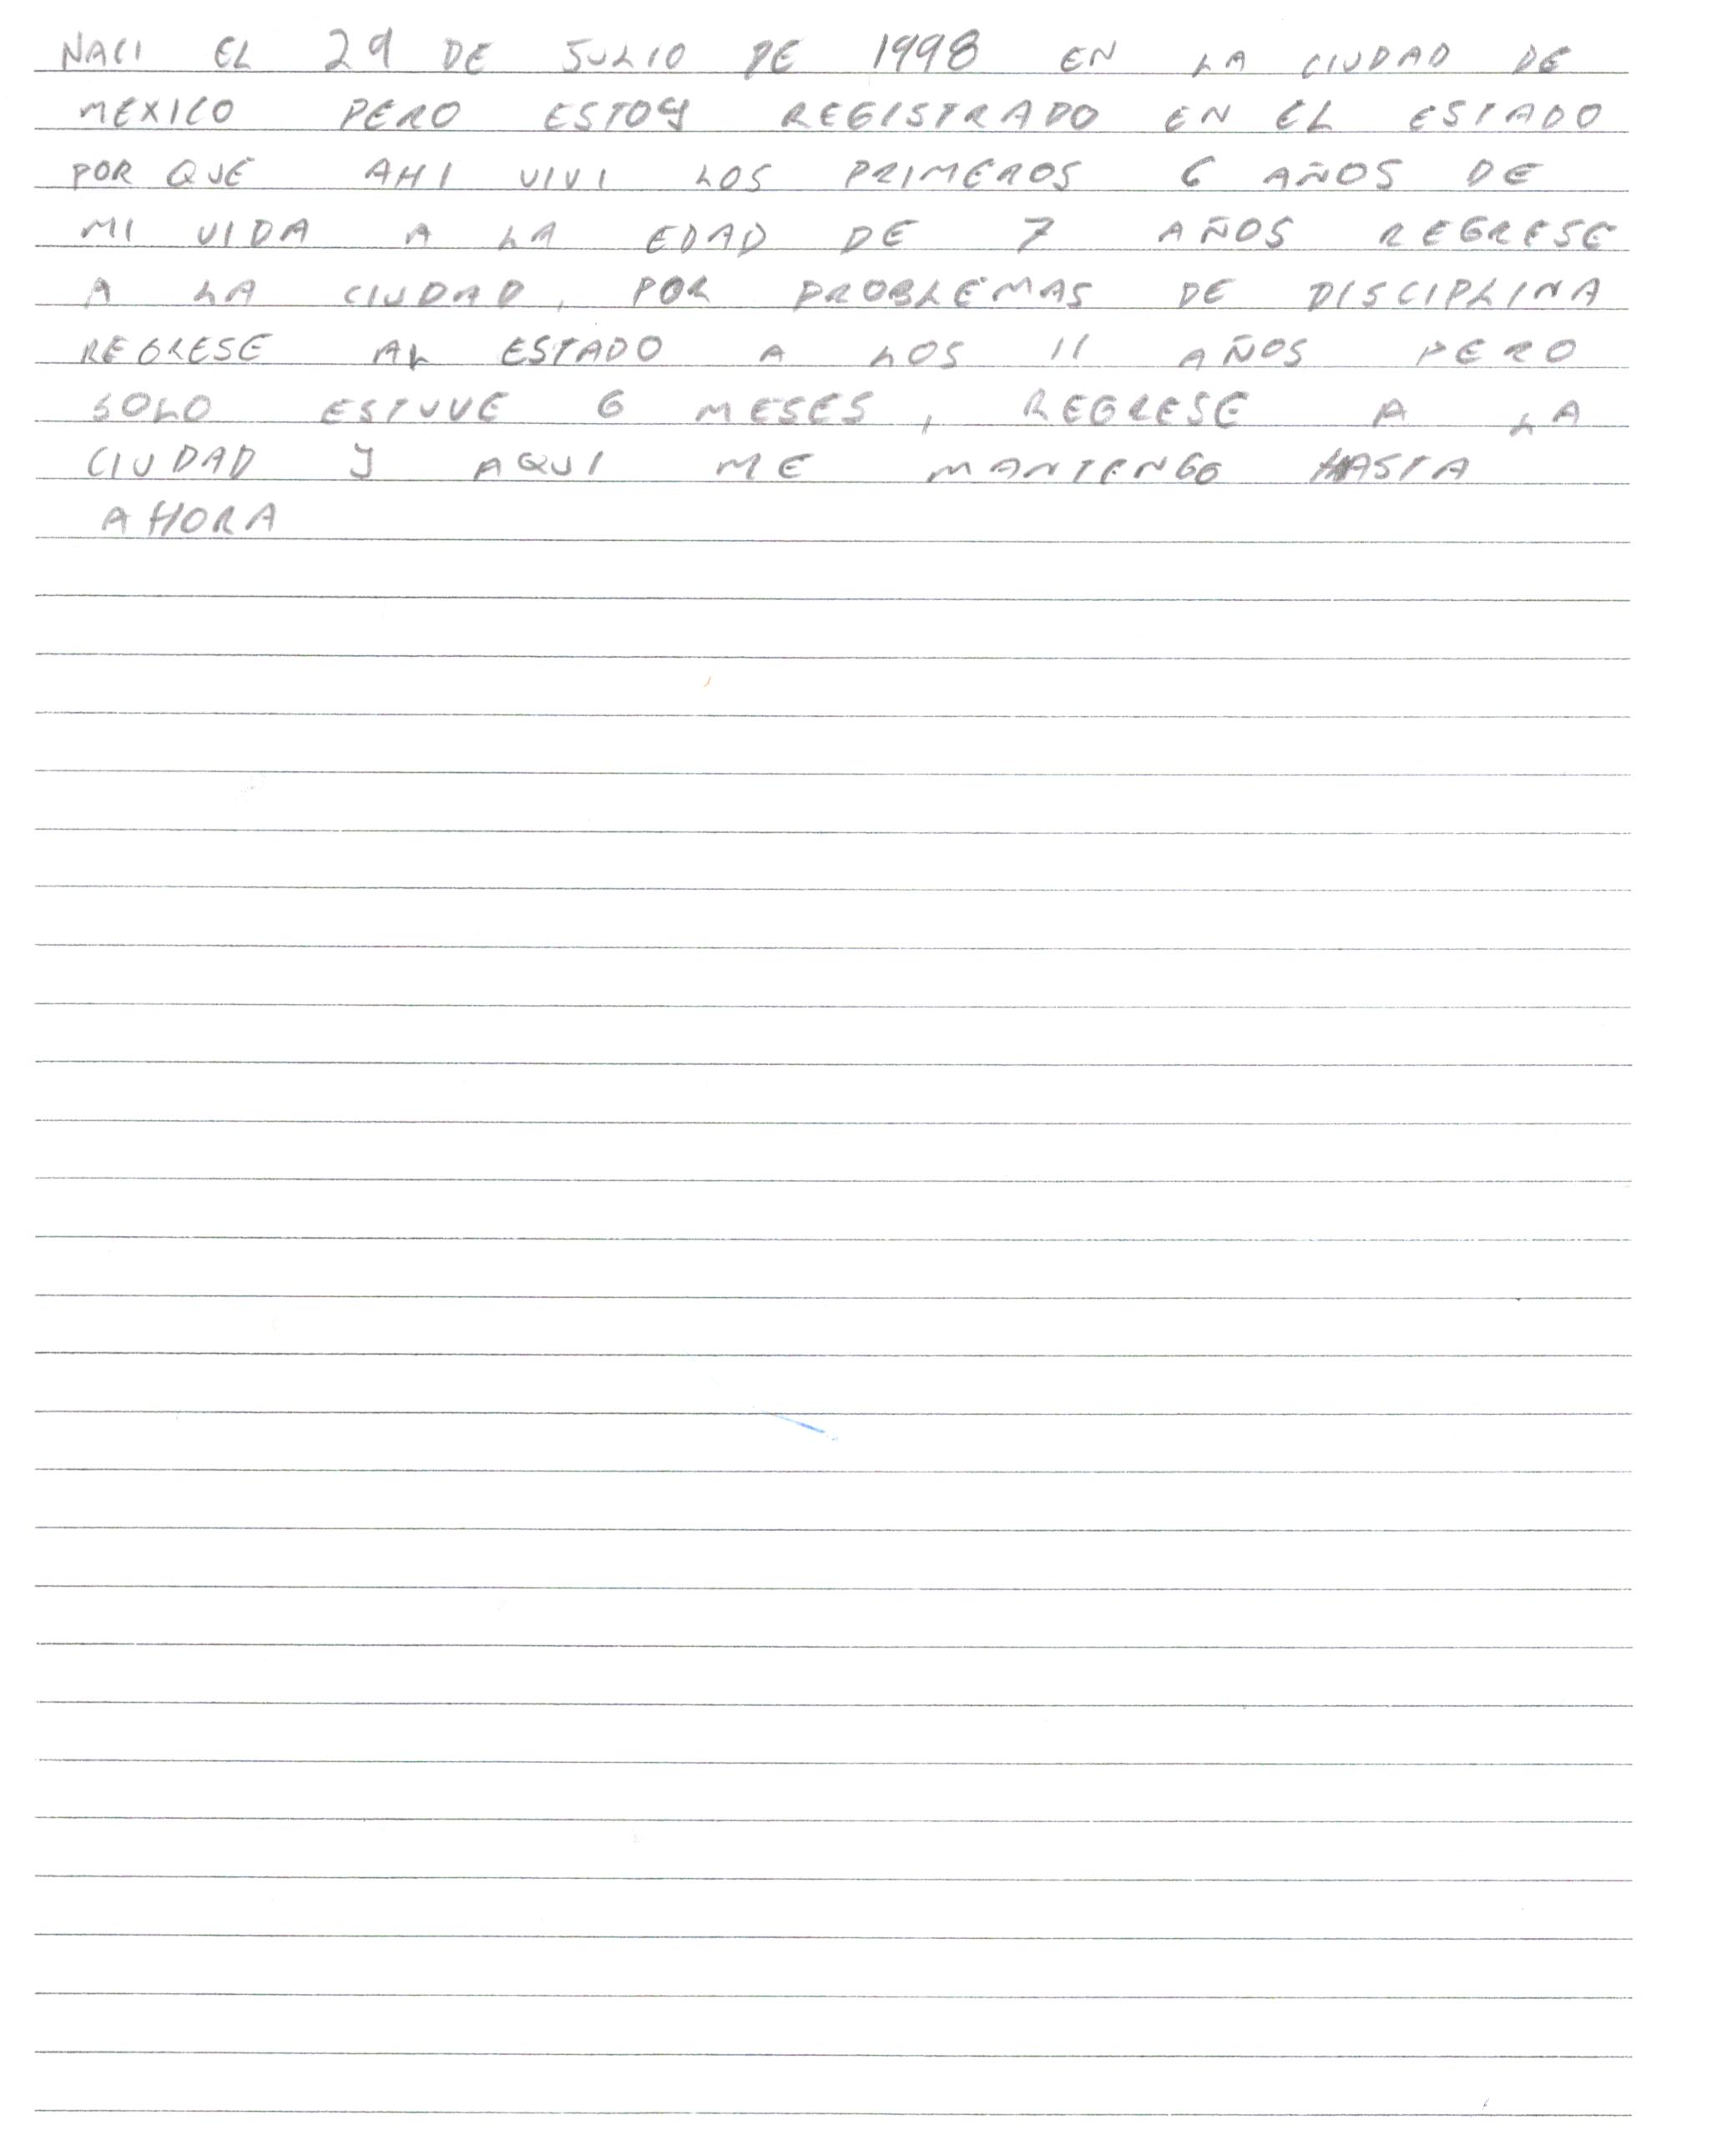 NACI EL 29 DE JULIO DE 1998 EN LA CIUDAD DE
MEXICO PERO ESTOY REGISTRADO EN EL ESTADO
POR QUE AHI VIVI LOS PRIMEROS 6 AÑOS DE
MI VIDA A LA EDAD DE 7 AÑOS REGRESE
A LA CIUDAD, POR PROBLEMAS DE DISCIPLINA
REGRESE AL ESTADO A LOS 11 AÑOS PERO
SOLO ESTUVE 6 MESES, REGRESE A LA
CIUDAD Y AQUI ME MANTENGO HASTA
AHORA